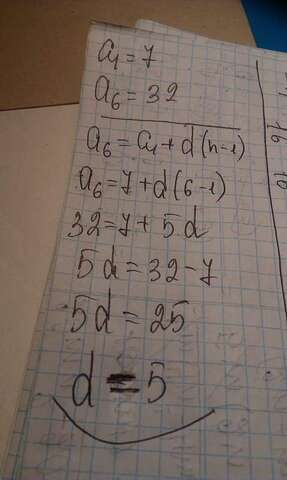 a₁=7
a₆=32
a₆=a₁+d(n-1)
a₆=7+d(6-1)
32=7+5d
5d=32-7
5d=25
d=5